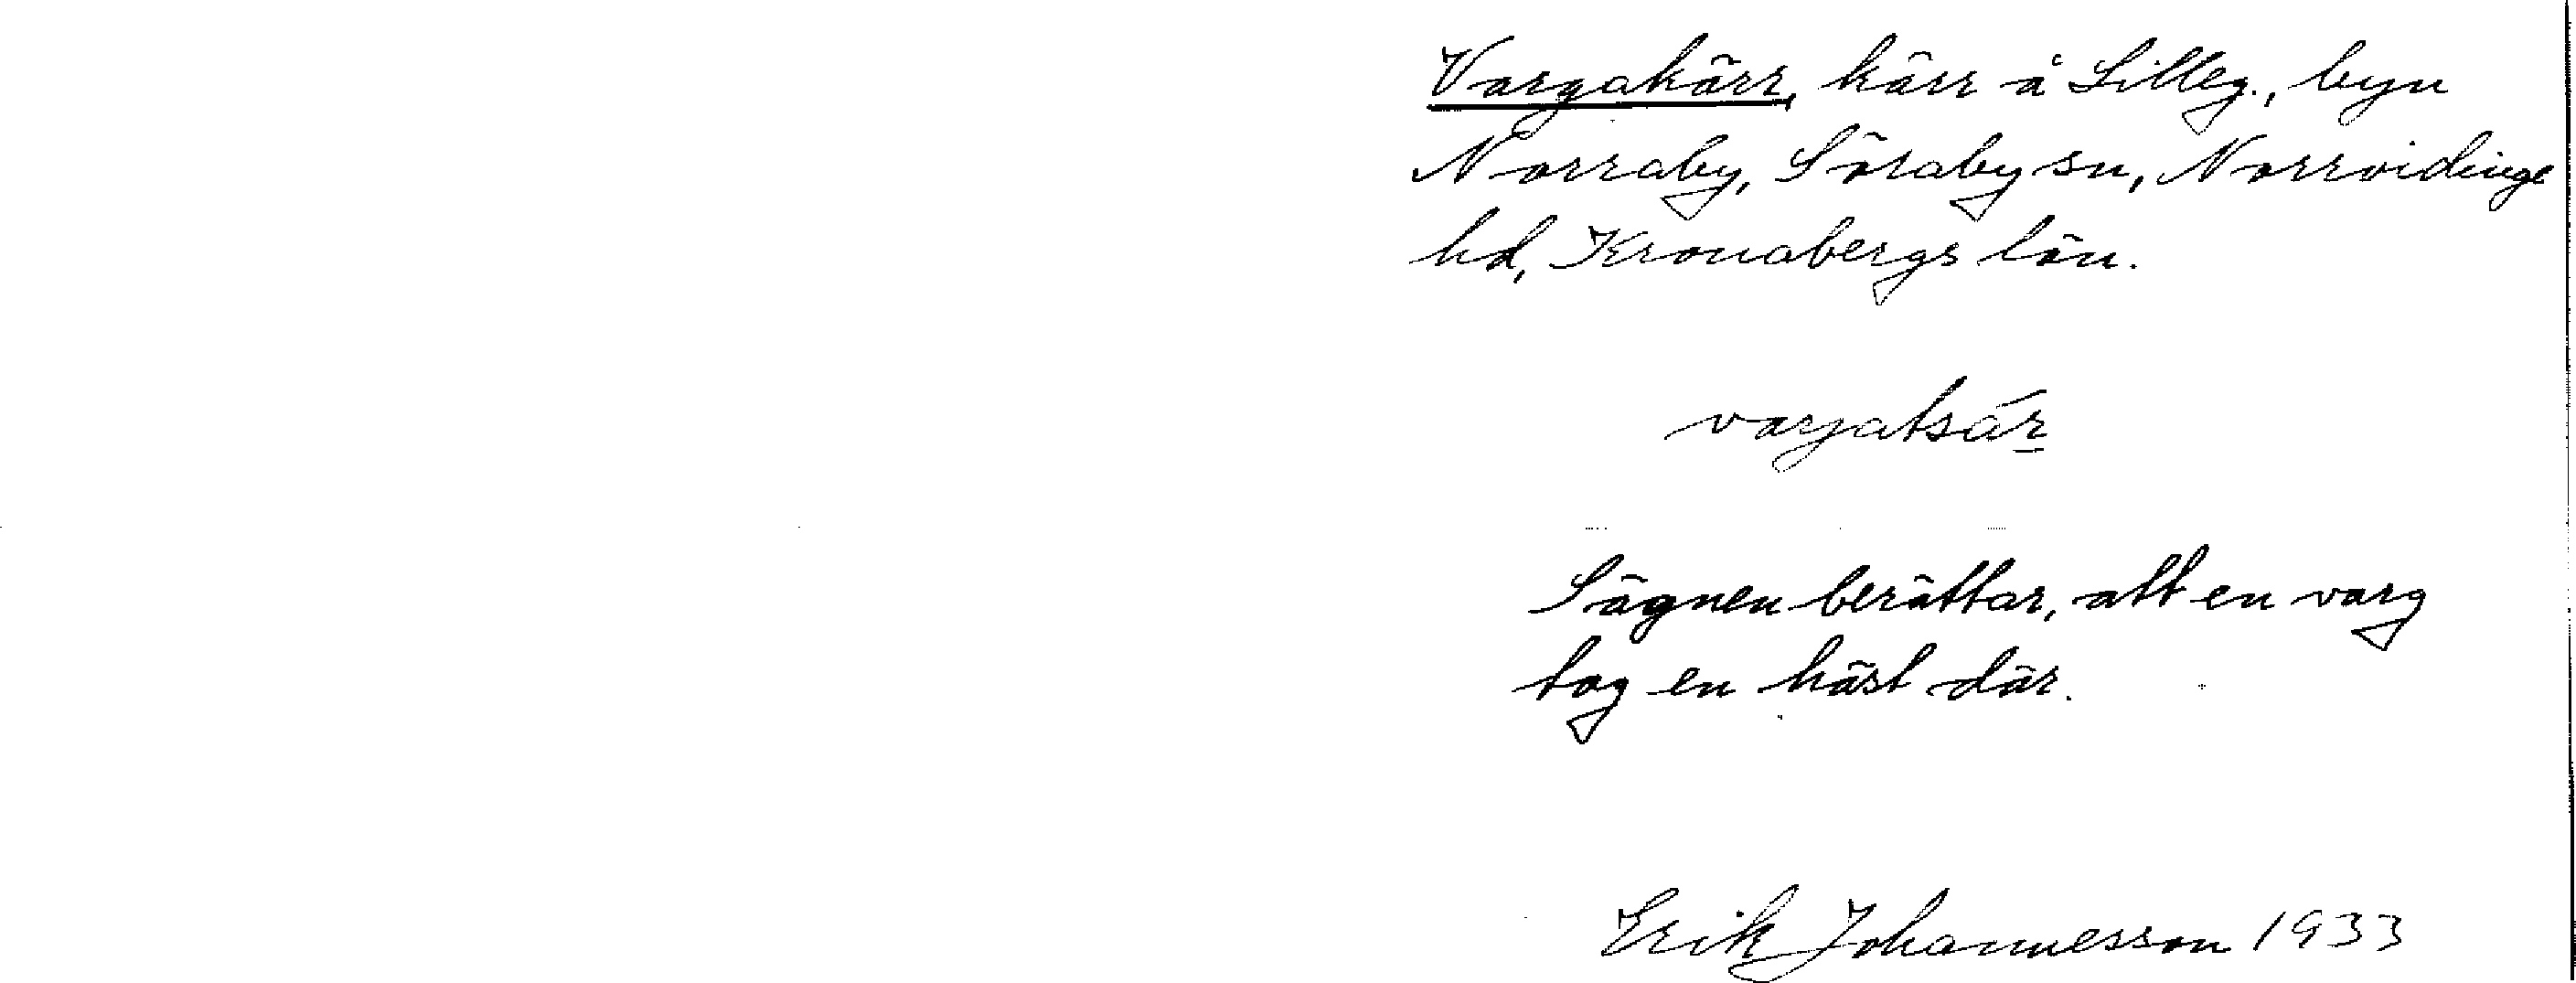 Vargakärr, kärr å Lilleg., byn
Norraby, Söraby sn, Norrvidinge
hd, Kronobergs län.
varjatsár
Sägnen berättar, att en varg
tog en häst där.
Erik Johannesson 1933